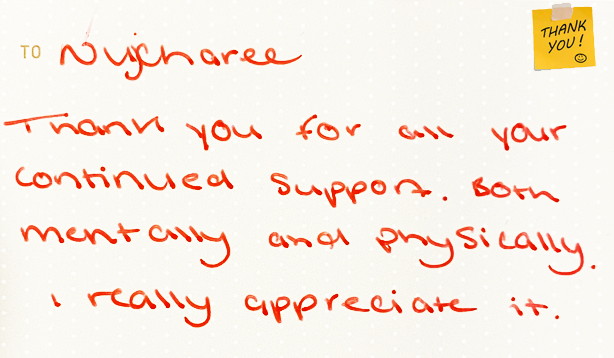 THANK
YOU!
TO Nujcharee
Thank you for all your
continued support. Both
mentally and physically.
i really appreciate it.